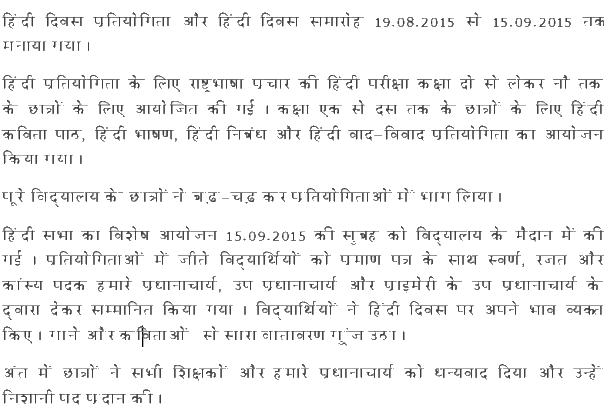 हिंदी दिवस प्रतियोगिता और हिंदी दिवस समारोह 19.08.2015 से 15.09.2015 तक
मनाया गया ।
हिंदी प्रतियोगिता के लिए राष्ट्रभाषा प्रचार की हिंदी परीक्षा कक्षा दो से लेकर नौ तक
के छात्रों के लिए आयोजित की गई । कक्षा एक से दस तक के छात्रों के लिए हिंदी
कविता पाठ, हिंदी भाषण, हिंदी निबंध और हिंदी वाद-विवाद प्रतियोगिता का आयोजन
किया गया ।
पूरे विद्यालय के छात्रों ने बढ़-चढ़ कर प्रतियोगिताओं में भाग लिया ।
हिंदी सभा का विशेष आयोजन 15.09.2015 की सुबह को विद्यालय के मैदान में की
गई । प्रतियोगिताओं में जीते विद्यार्थियों को प्रमाण पत्र के साथ स्वर्ण, रजत और
कांस्य पदक हमारे प्रधानाचार्य, उप प्रधानाचार्य और प्राइमेरी के उप प्रधानाचार्य के
द्वारा देकर सम्मानित किया गया । विद्यार्थियों ने हिंदी दिवस पर अपने भाव व्यक्त
किए । गाने और कविताओं से सारा वातावरण गूंज उठा ।
अंत में छात्रों ने सभी शिक्षकों और हमारे प्रधानाचार्य को धन्यवाद दिया और उन्हें
निशानी पद प्रदान की ।